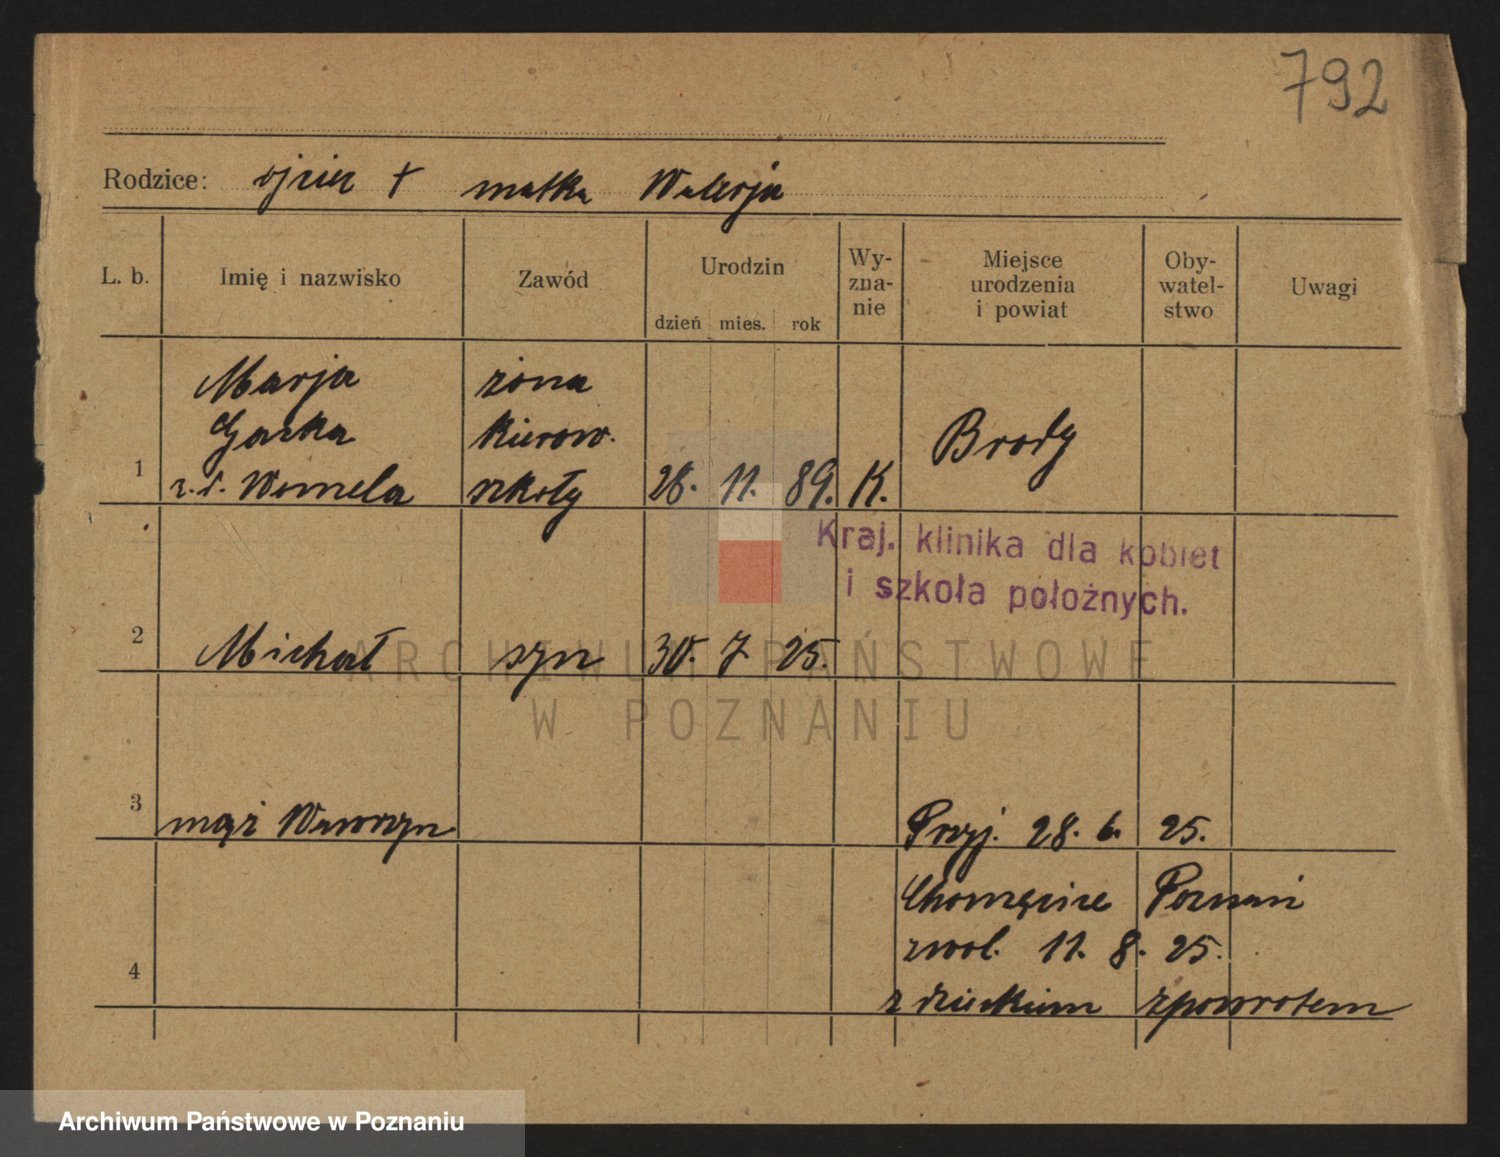 792
Rodzice: ojciec + matka Walerja
L. b. Imię i nazwisko Zawód Urodzin dzień mies. rok Wy-zna-nie Miejsce urodzenia i powiat Oby-watel-stwo Uwagi
Marja żona
Gacka kierow. Brody
1 z. d. Womela szkoły 28. 11. 89. K.
Kraj. klinika dla kobiet
i szkoła położnych.
2 Michał syn 30. 7 25.
ARCHIWUM PAŃSTWOWE
W POZNANIU
3 mąż Wawrzyn Przyj. 28. 6. 25.
Chomęcice Poznań
zwol. 11. 8. 25.
4
z dzieckiem zpowrotem
Archiwum Państwowe w Poznaniu